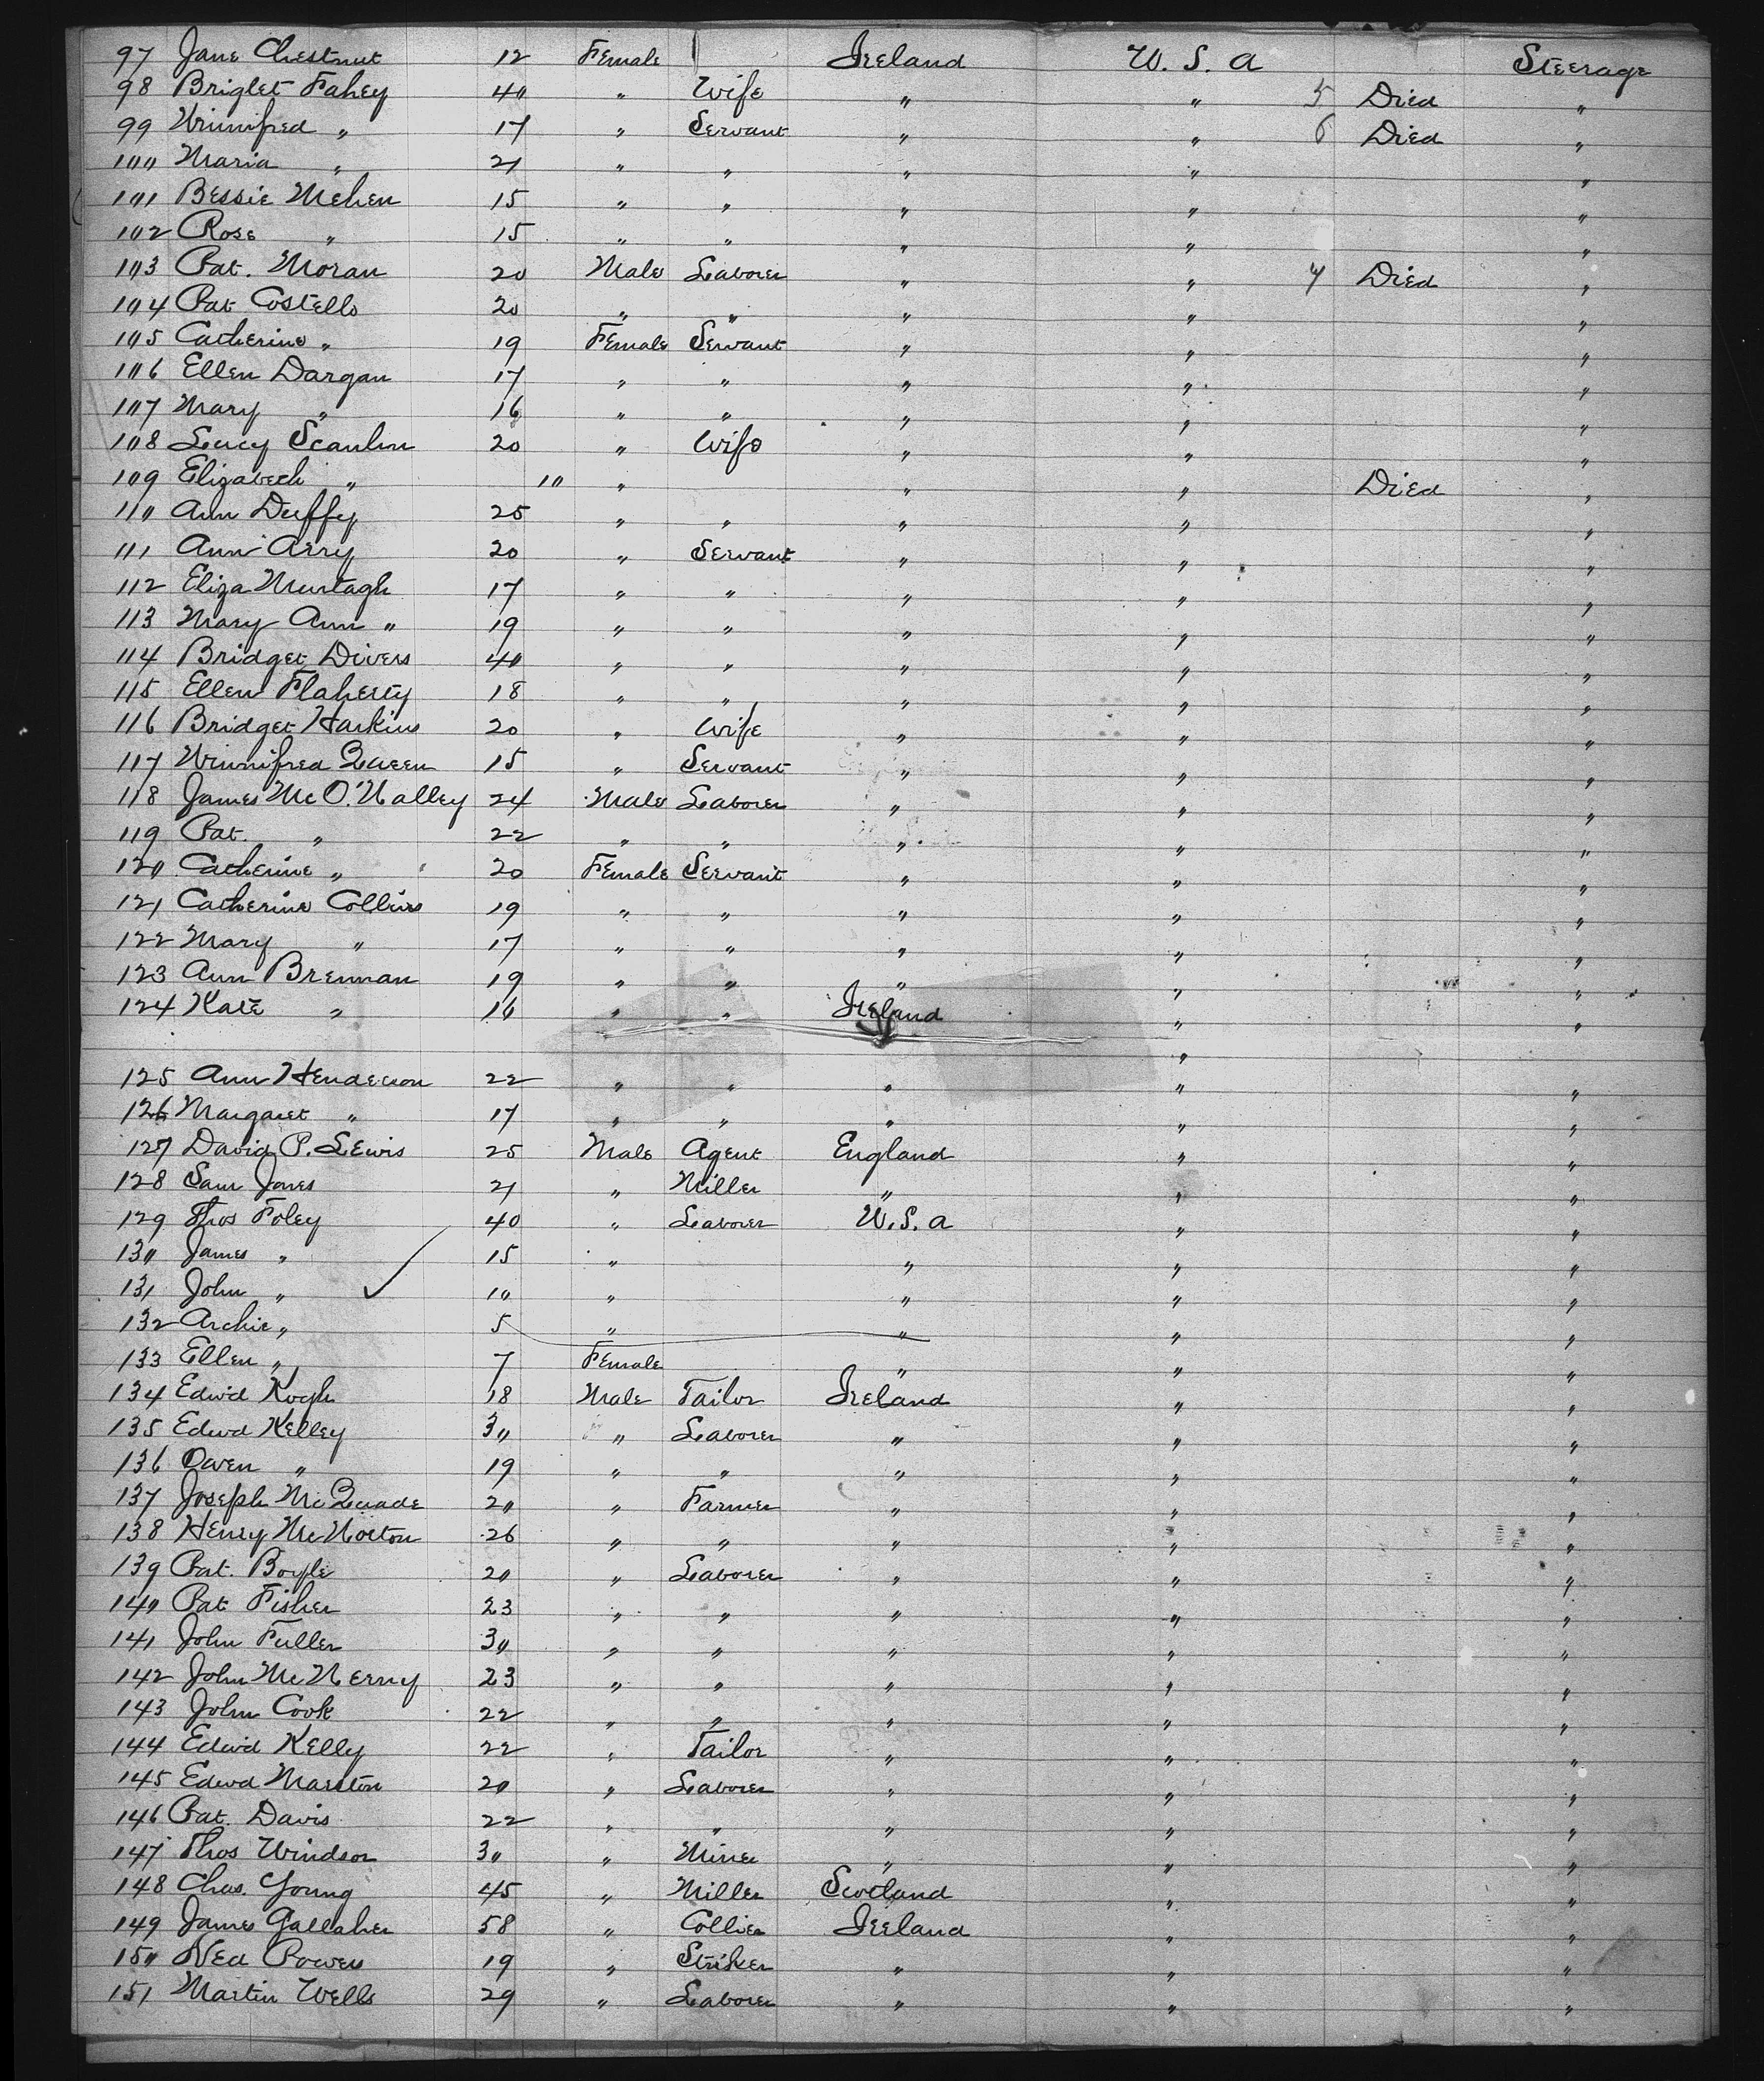 97 Jane Chestnut 12 Female Ireland U. S. a Steerage
98 Briglet Fahey 40 " Wife " " 5 Died "
99 Winnifred " 17 " Servant " " 6 Died "
100 Maria " 21 " " " " "
101 Bessie Mehen 15 " " " " "
102 Rose " 15 " " " " "
103 Pat. Moran 20 Male Laborer " " 4 Died "
104 Pat Costello 20 " " " " "
105 Catherine " 19 Female Servant " " "
106 Ellen Dargan 17 " " " " "
107 Mary " 16 " " " " "
108 Lucy Scanlin 20 " Wife " " "
109 Elizabeth " 10 " " " Died "
110 Ann Duffy 25 " " " " "
111 Ann Arry 20 " Servant " " "
112 Eliza Murtagh 17 " " " " "
113 Mary Ann " 19 " " " " "
114 Bridget Divers 40 " " " " "
115 Ellen Flaherty 18 " " " " "
116 Bridget Harkins 20 " Wife " " "
117 Winnifred Queen 15 " Servant " " "
118 James Mc O'Nalley 24 Male Laborer " " "
119 Pat. " 22 " " " " "
120 Catherine " 20 Female Servant " " "
121 Catherine Collins 19 " " " " "
122 Mary " 17 " " " " "
123 Ann Brennan 19 " " " " "
124 Kate " 16 " " Ireland " "
"
125 Ann Henderson 22 " " " " "
126 Margaret " 17 " " " " "
127 David P. Lewis 25 Male Agent England " "
128 Sam Jones 21 " Miller " " "
129 Thos Foley 40 " Laborer U. S. a " "
130 James " 15 " " " "
131 John " 10 " " " "
132 Archie " 5 " " " "
133 Ellen " 7 Female " " "
134 Edwd Kogh 18 Male Tailor Ireland " "
135 Edwd Kelley 30 " Laborer " " "
136 Owen " 19 " " " " "
137 Joseph McQuade 20 " Farmer " " "
138 Henry McNorton 26 " " " " "
139 Pat. Boyle 20 " Laborer " " "
140 Pat Fisher 23 " " " " "
141 John Fuller 30 " " " " "
142 John McNerny 23 " " " " "
143 John Cook 22 " " " " "
144 Edwd Kelly 22 " Tailor " " "
145 Edwd Marston 20 " Laborer " " "
146 Pat. Davis 22 " " " " "
147 Thos Windsor 30 " Miner " " "
148 Chas. Young 45 " Miller Scotland " "
149 James Gallaher 58 " Collier Ireland " "
150 Ned Powers 19 " Striker " " "
151 Martin Wells 29 " Laborer " " "